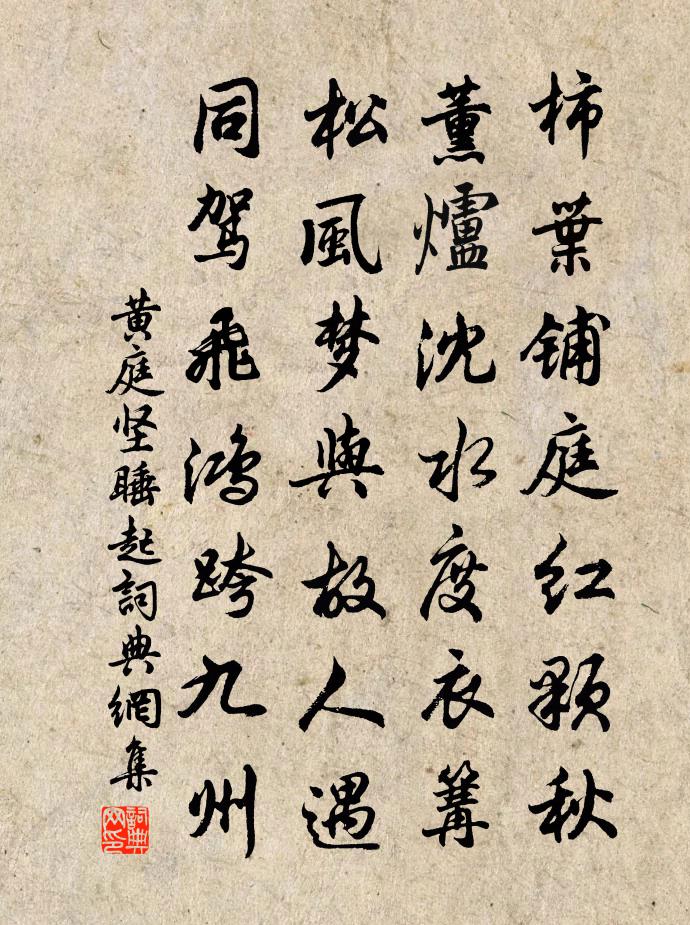 柿葉铺庭红顆秋
薰爐沈水度衣篝
松風梦與故人遇
同驾飛鴻跨九州
黄庭坚睡起詞典網集
詞典网印